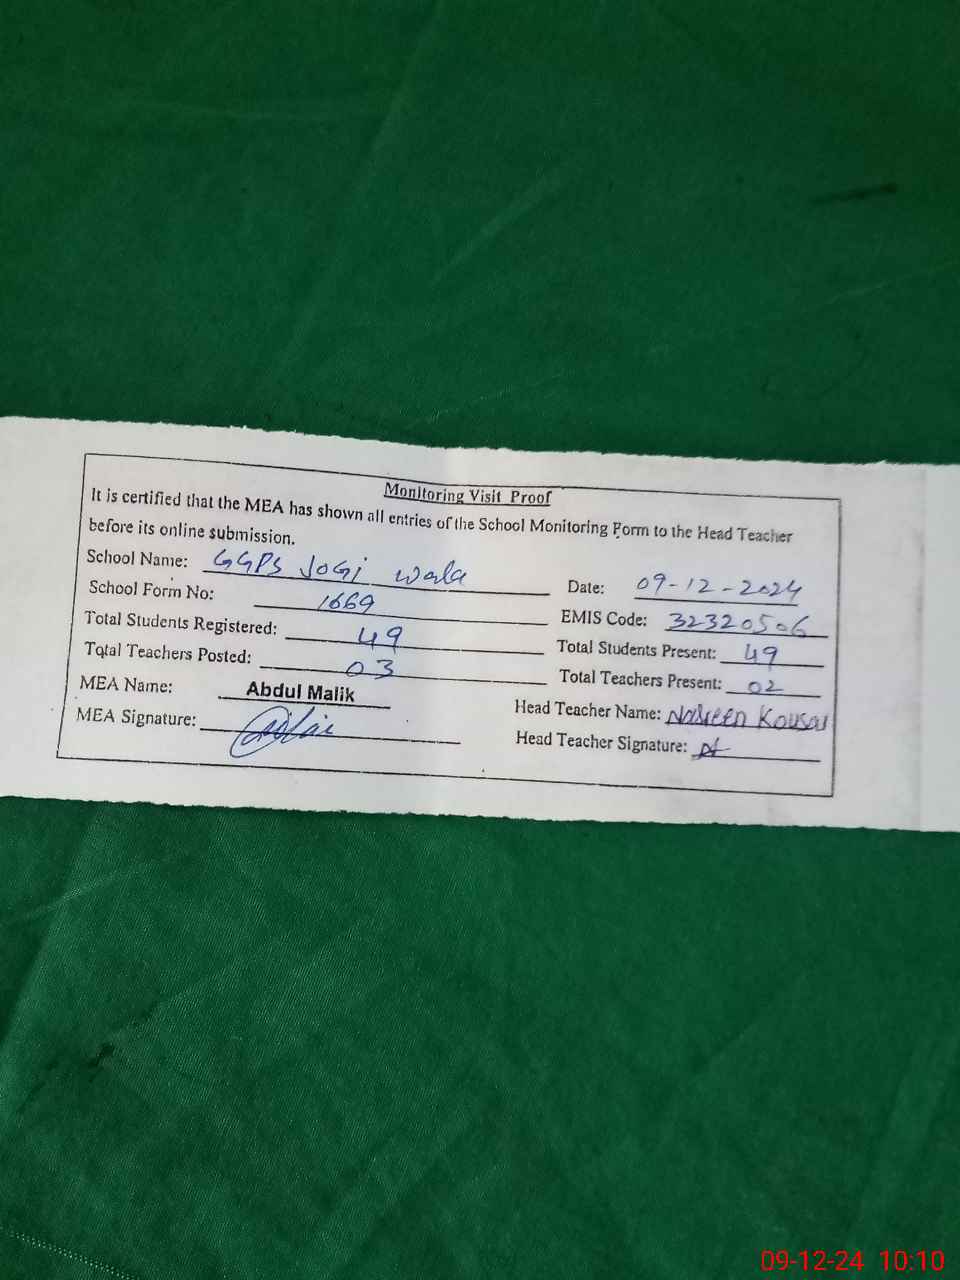 Monitoring Visit Proof
It is certified that the MEA has shown all entries of the School Monitoring Form to the Head Teacher
before its online submission.
School Name: GGPS JOGI Wala
Date: 09-12-2024
School Form No: 1669
EMIS Code: 32320506
Total Students Registered: 49
Total Students Present: 49
Total Teachers Posted: 03
Total Teachers Present: 02
MEA Name: Abdul Malik
Head Teacher Name: Nasreen Kousar
MEA Signature:
Head Teacher Signature:
09-12-24 10:10